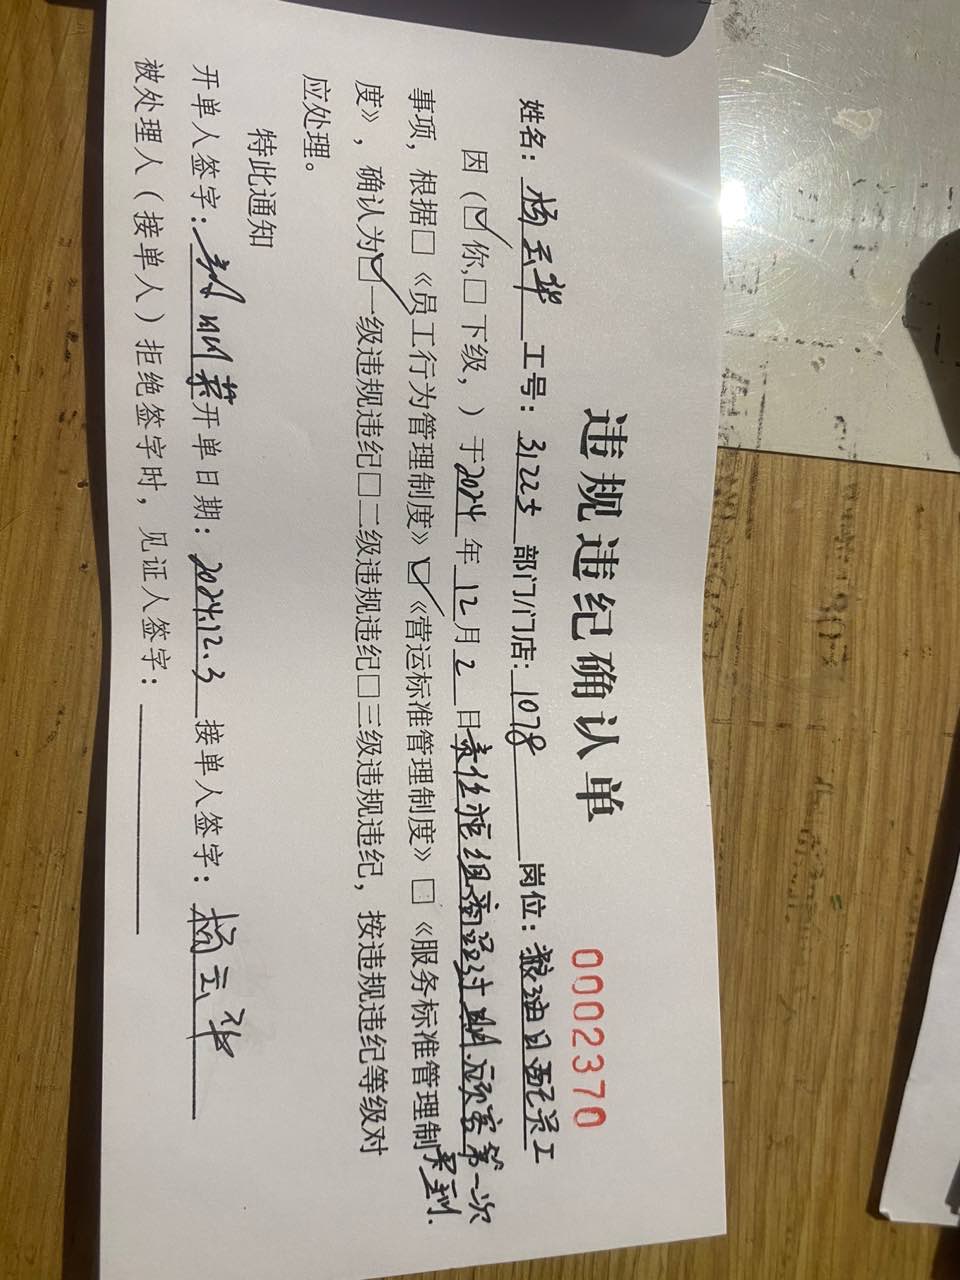 违规违纪确认单
0002370
姓名：杨云华 工号：31225 部门/门店：1078 岗位：粮油日配员工
因（☑你，□下级，）于2024年12月2日责任柜组商品过期.顾客第一次买到.
事项，根据□《员工行为管理制度》☑《营运标准管理制度》□《服务标准管理制
度》，确认为☑一级违规违纪□二级违规违纪□三级违规违纪，按违规违纪等级对
应处理。
特此通知
开单人签字： 开单日期：2024.12.3 接单人签字：杨云华
被处理人（接单人）拒绝签字时，见证人签字：